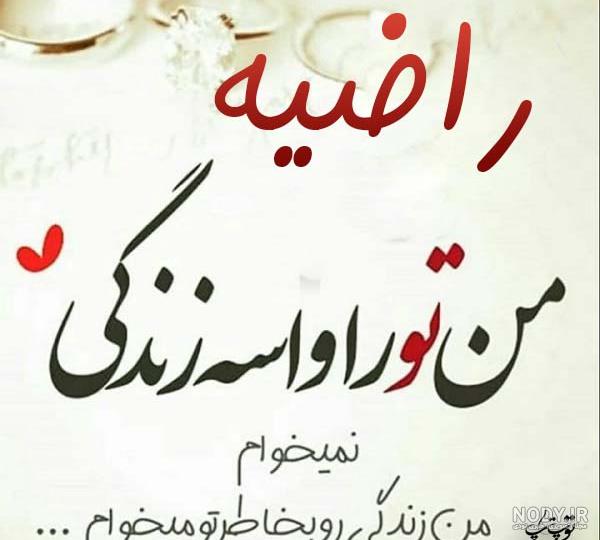 راضیه
من تو را واسه زندگی
نمیخوام
من زندگی رو بخاطر تو میخوام ...
NODY.IR